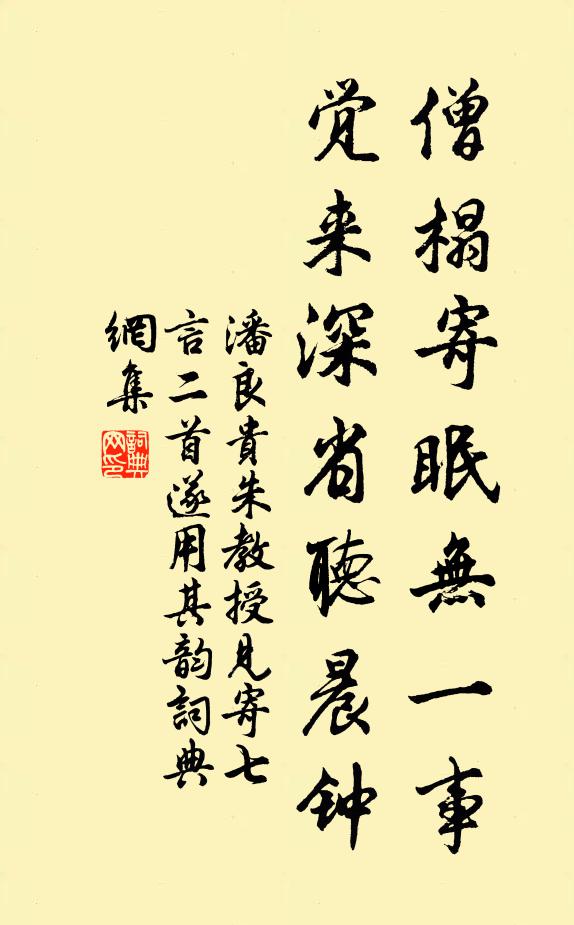 僧榻寄眠無一事
觉来深省聴晨钟
潘良貴朱教授見寄七
言二首遂用其韵詞典
網集
詞典
网印